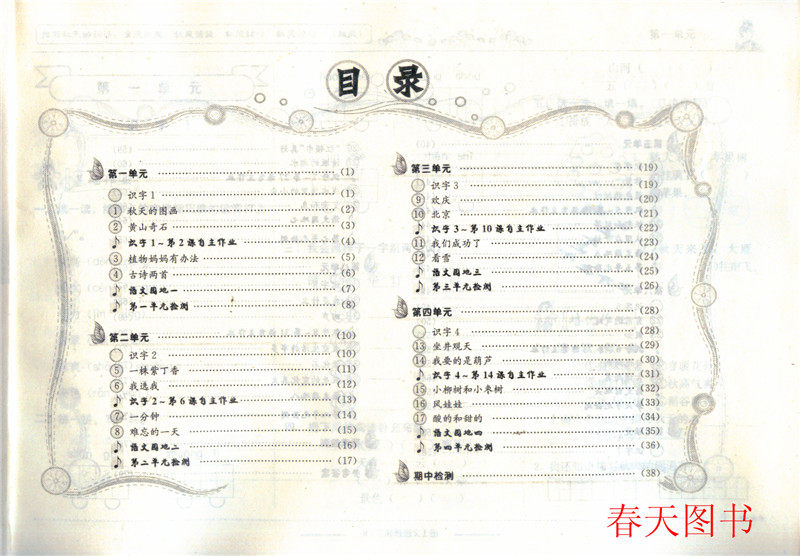 目录
第一单元 (1)
识字1 (1)
① 秋天的图画 (2)
② 黄山奇石 (3)
识字1~第2课自主作业 (4)
③ 植物妈妈有办法 (5)
④ 古诗两首 (6)
语文园地一 (7)
第一单元检测 (8)
第二单元 (10)
识字2 (10)
⑤ 一株紫丁香 (11)
⑥ 我选我 (12)
识字2~第6课自主作业 (13)
⑦ 一分钟 (14)
⑧ 难忘的一天 (15)
语文园地二 (16)
第二单元检测 (17)
第三单元 (19)
识字3 (19)
⑨ 欢庆 (20)
⑩ 北京 (21)
识字3~第10课自主作业 (22)
⑪ 我们成功了 (23)
⑫ 看雪 (24)
语文园地三 (25)
第三单元检测 (26)
第四单元 (28)
识字4 (28)
⑬ 坐井观天 (29)
⑭ 我要的是葫芦 (30)
识字4~第14课自主作业 (31)
⑮ 小柳树和小枣树 (32)
⑯ 风娃娃 (33)
⑰ 酸的和甜的 (34)
语文园地四 (35)
第四单元检测 (36)
期中检测 (38)
春天图书